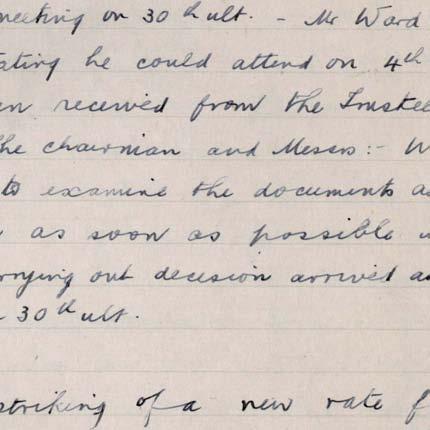 meeting on 30th ult. - Mr Ward
ating he could attend on 4th
en received from the Trustee
the chairman and Messrs:- W
to examine the documents as
as soon as possible
rrying out decision arrived a
30th ult.
striking of a new rate f